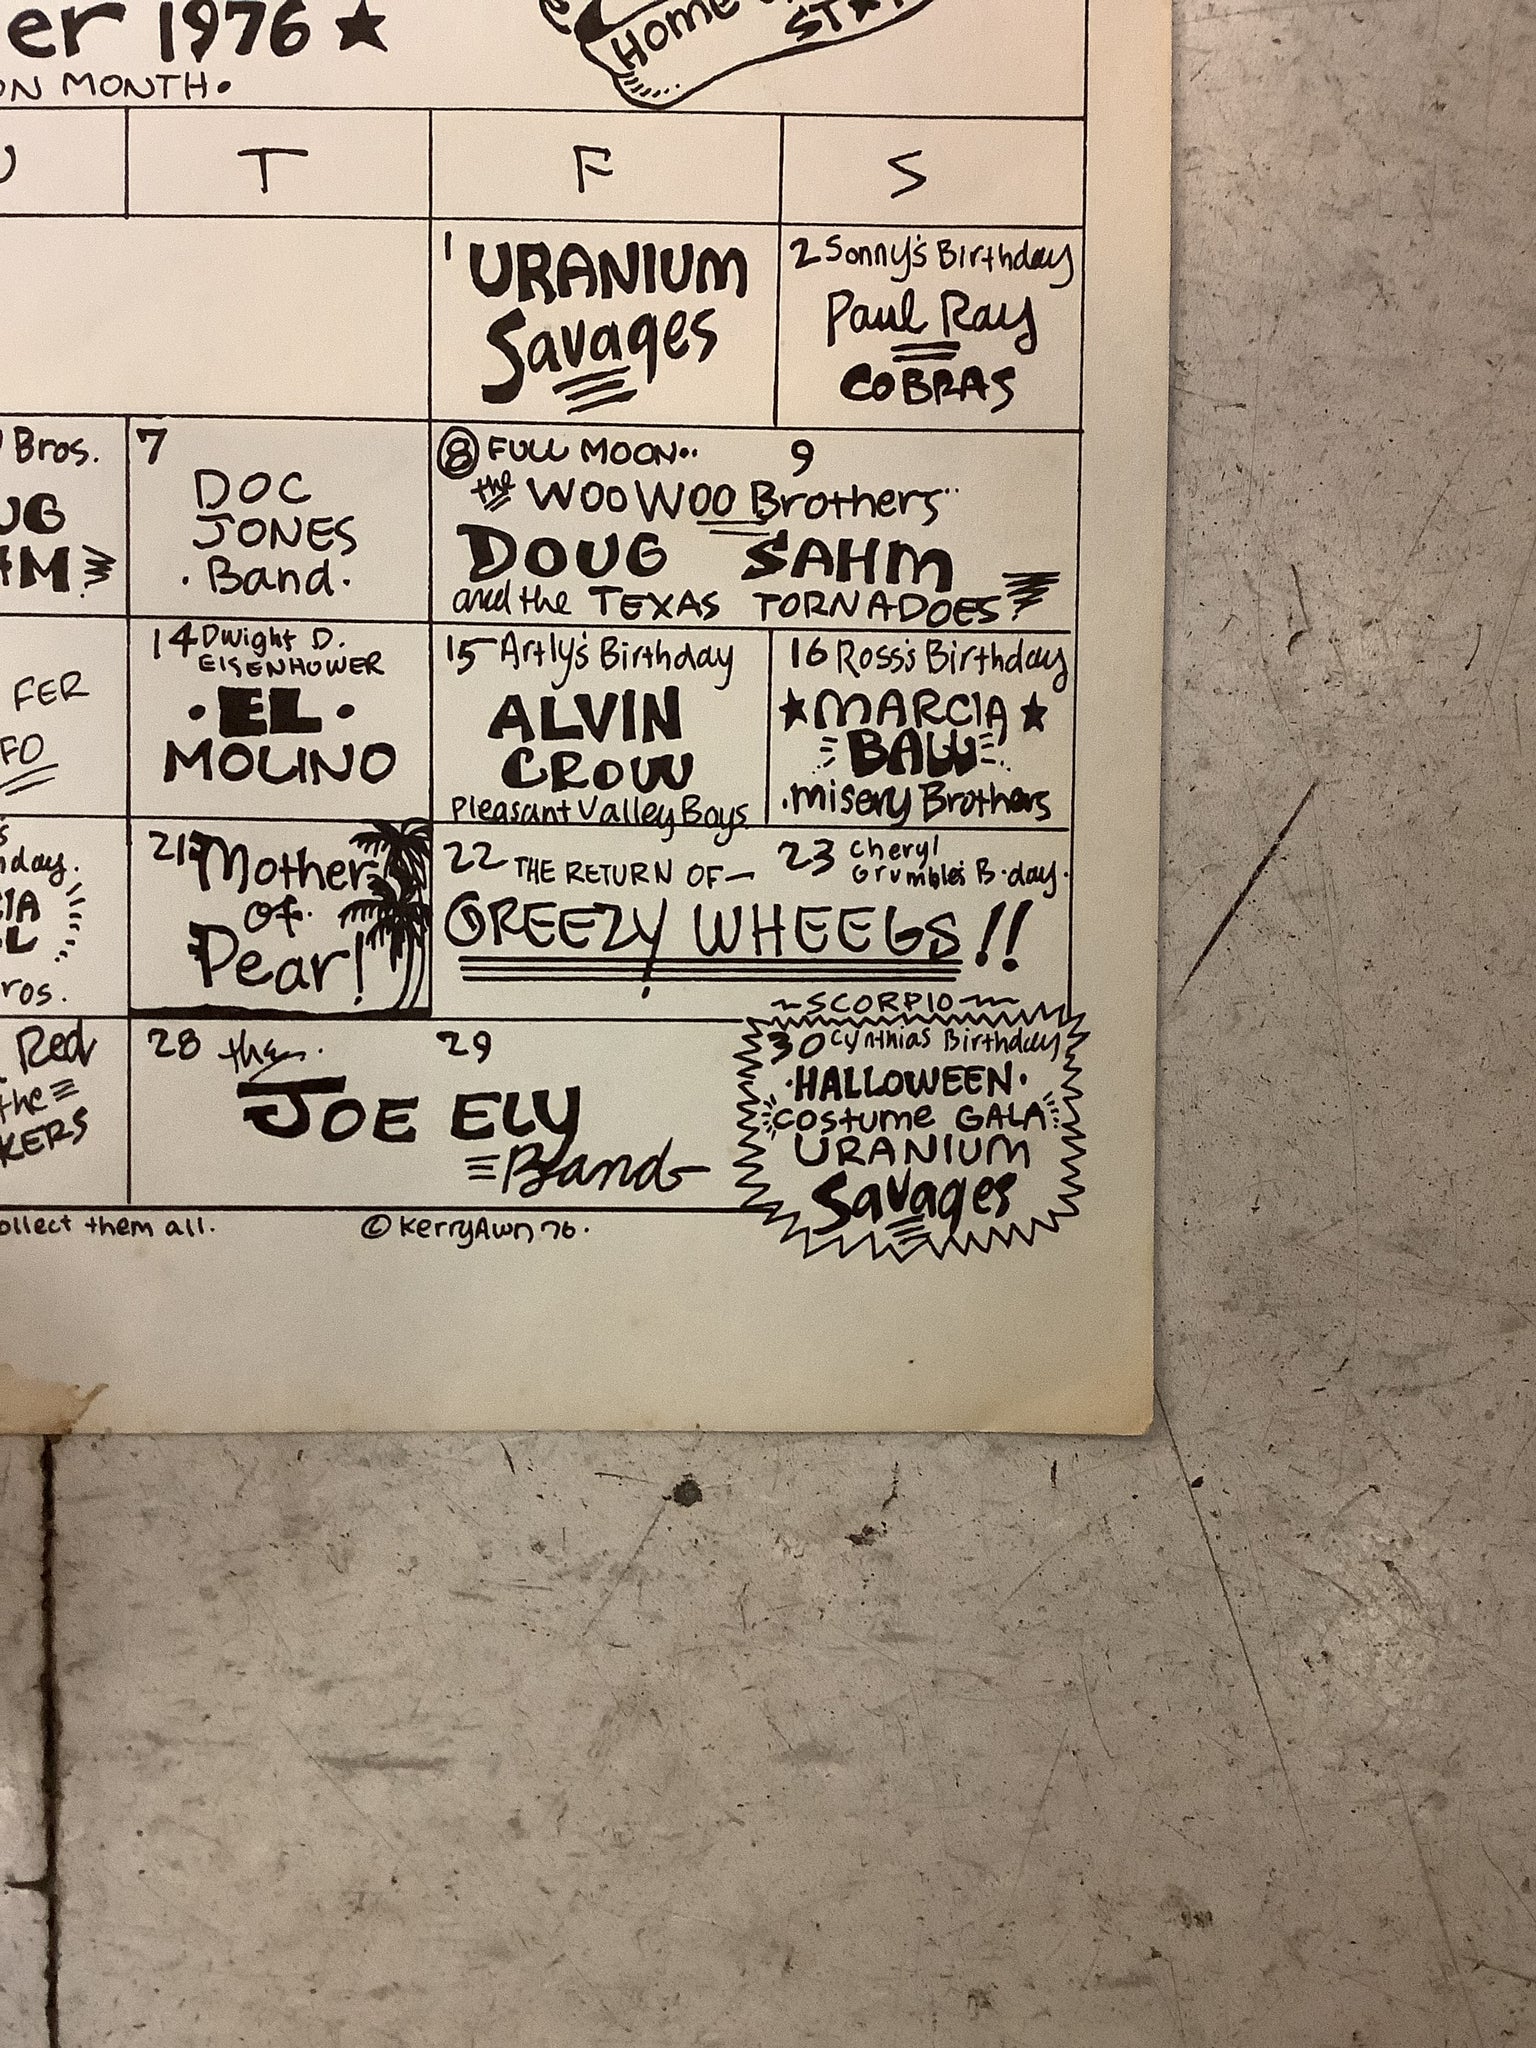 er 1976 ★
ON MONTH.
HOME
T F S
1 URANIUM
Savages
2 Sonny's Birthday
Paul Ray
COBRAS
Bros.
7
DOC
JONES
. Band .
8 FULL MOON.. 9
the WOO WOO Brothers
DOUG SAHM
and the TEXAS TORNADOES
FER
FO
14 Dwight D.
EISENHOWER
. EL .
MOLINO
15 Artly's Birthday
ALVIN
CROW
Pleasant Valley Boys
16 Ross's Birthday
★ MARCIA ★
BALL
. misery Brothers
nday.
IA
L
ros.
21 Mother
of
Pear!
22 THE RETURN OF— 23 Cheryl
Grumble's B-day.
GREEZY WHEELS!!
Red
the
KERS
28 the 29
JOE ELY
Band
~SCORPIO~
30 Cynthias Birthday
. HALLOWEEN .
Costume GALA
URANIUM
Savages
ollect them all.
© Kerry Awn 76.